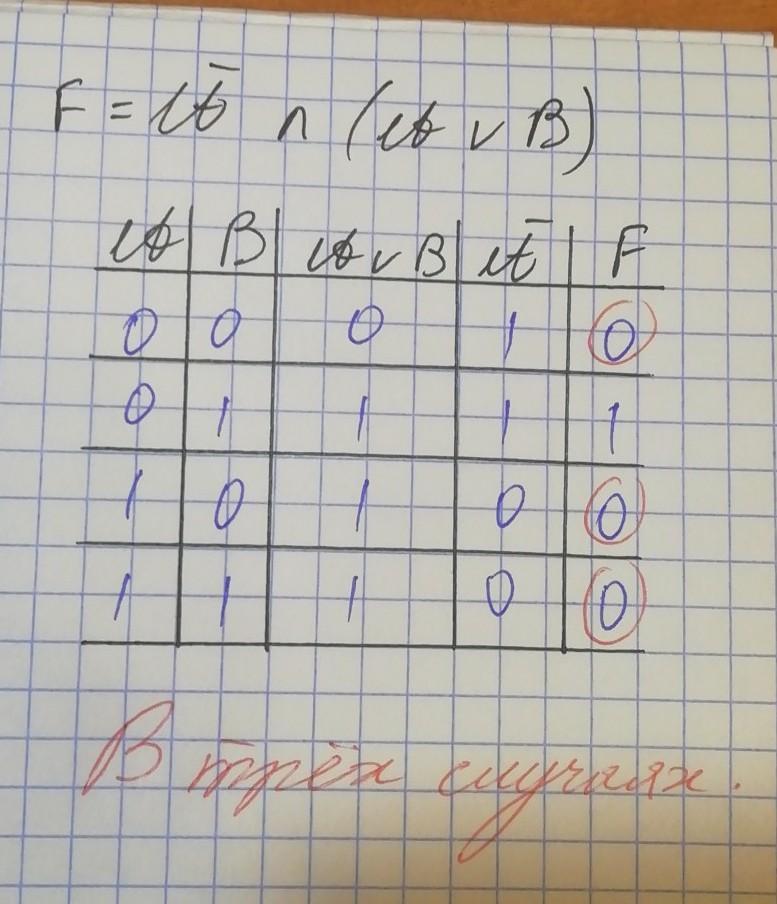 F = Ā ∧ (A ∨ B)
A B A ∨ B Ā F
0 0 0 1 0
0 1 1 1 1
1 0 1 0 0
1 1 1 0 0
В трёх случаях.